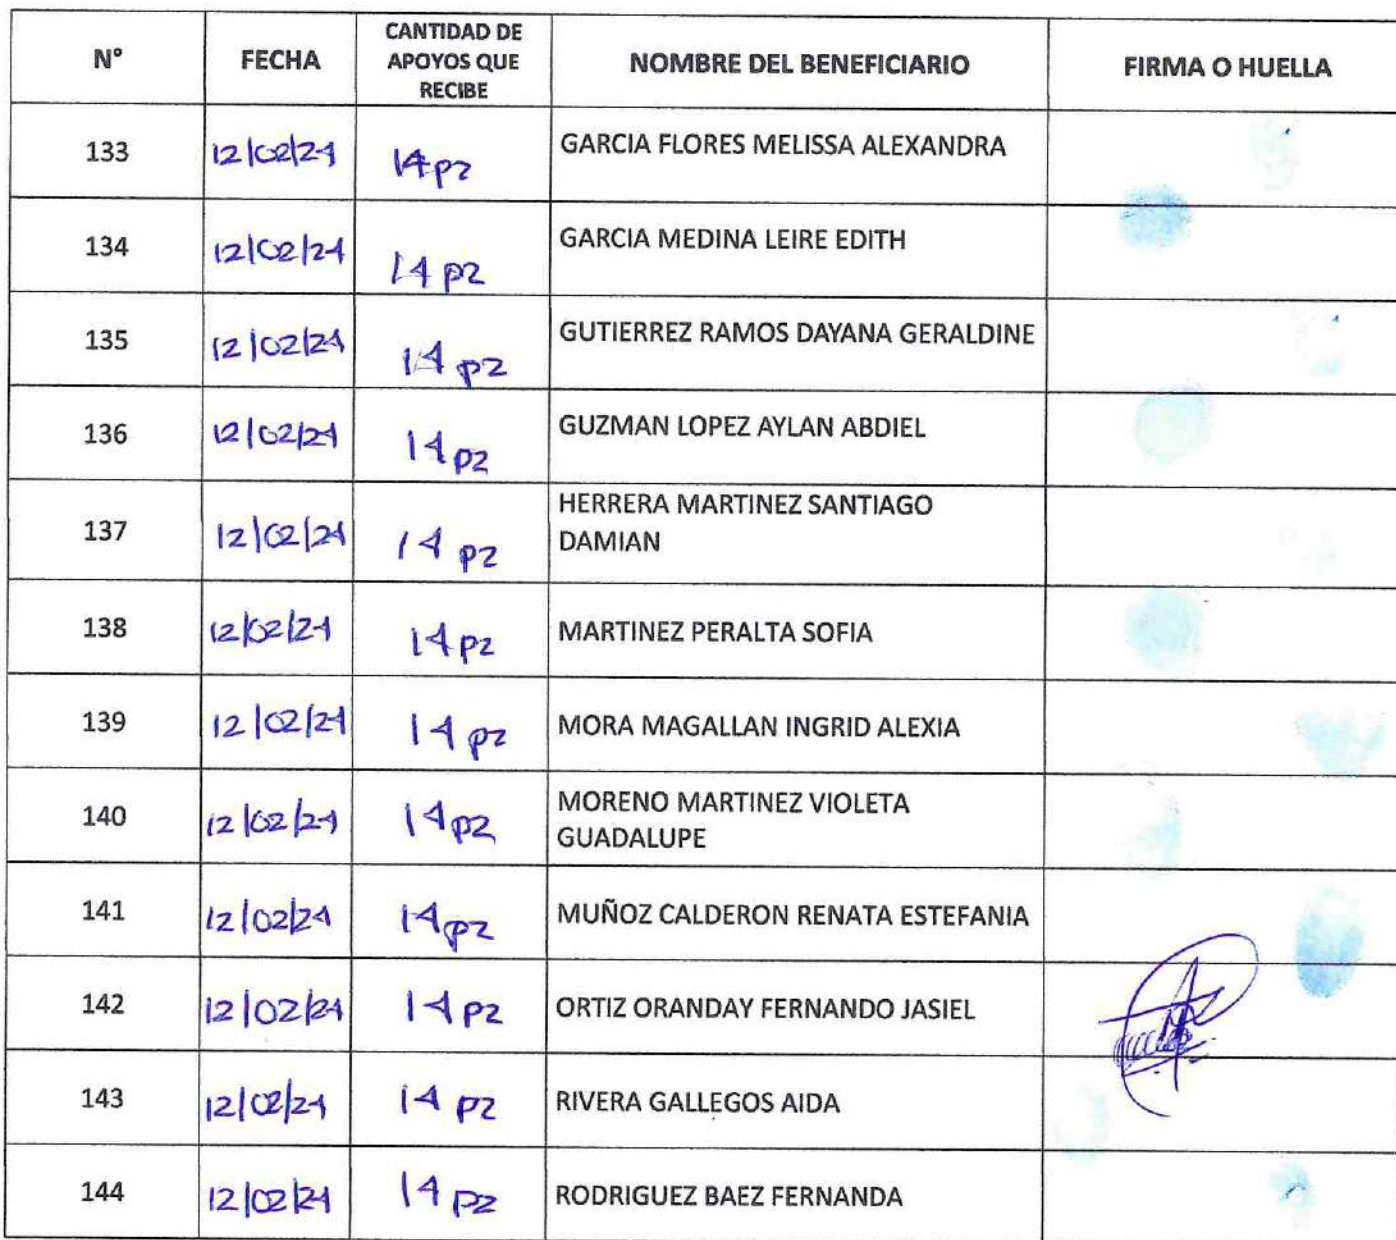 N° FECHA CANTIDAD DE APOYOS QUE RECIBE NOMBRE DEL BENEFICIARIO FIRMA O HUELLA
133 12/02/24 14 pz GARCIA FLORES MELISSA ALEXANDRA
134 12/02/24 14 pz GARCIA MEDINA LEIRE EDITH
135 12/02/24 14 pz GUTIERREZ RAMOS DAYANA GERALDINE
136 12/02/24 14 pz GUZMAN LOPEZ AYLAN ABDIEL
137 12/02/24 14 pz HERRERA MARTINEZ SANTIAGO
DAMIAN
138 12/02/24 14 pz MARTINEZ PERALTA SOFIA
139 12/02/24 14 pz MORA MAGALLAN INGRID ALEXIA
140 12/02/24 14 pz MORENO MARTINEZ VIOLETA
GUADALUPE
141 12/02/24 14 pz MUÑOZ CALDERON RENATA ESTEFANIA
142 12/02/24 14 pz ORTIZ ORANDAY FERNANDO JASIEL
143 12/02/24 14 pz RIVERA GALLEGOS AIDA
144 12/02/24 14 pz RODRIGUEZ BAEZ FERNANDA